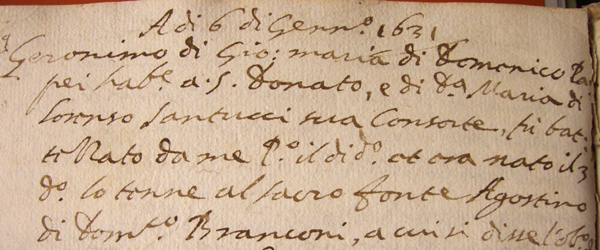 A di 6 di Genn.º 1631
Geronimo di Gio: maria di Domenico Ra
pei hab.e a. S. Donato, e di D.a Maria di
Lorenso Santucci sua Consorte, fu bat
tezzato da me P.º il di d.º et era nato il 3
d.º lo tenne al sacro fonte Agostino
di Dom.co Branconi, a cui si disse l'obo